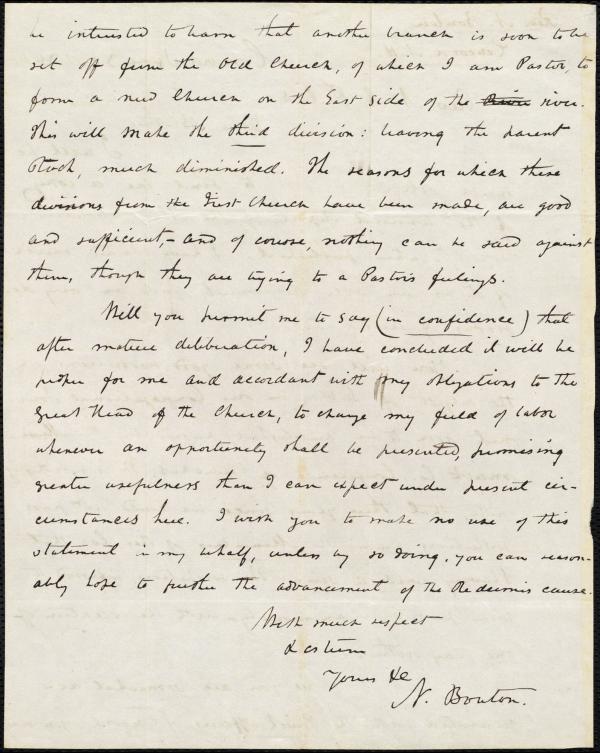 be interested to learn that another branch is soon to be
set off from the Old Church, of which I am Pastor, to
form a new Church on the East side of the river.
This will make the third division: leaving the parent
Stock, much diminished. The reasons for which these
divisions from the First Church have been made, are good
and sufficient,- and of course, nothing can be said against
them, though they are trying to a Pastor's feelings.
Will you permit me to say (in confidence) that
after mature deliberation, I have concluded it will be
proper for me and accordant with my obligations to the
Great Head of the Church, to change my field of labor
whenever an opportunity shall be presented, promising
greater usefulness than I can expect under present cir-
cumstances here. I wish you to make no use of this
statement in my behalf, unless by so doing, you can reason-
ably hope to further the advancement of the Redeemer's cause.
With much respect
& esteem
Yours &c
N. Bouton.